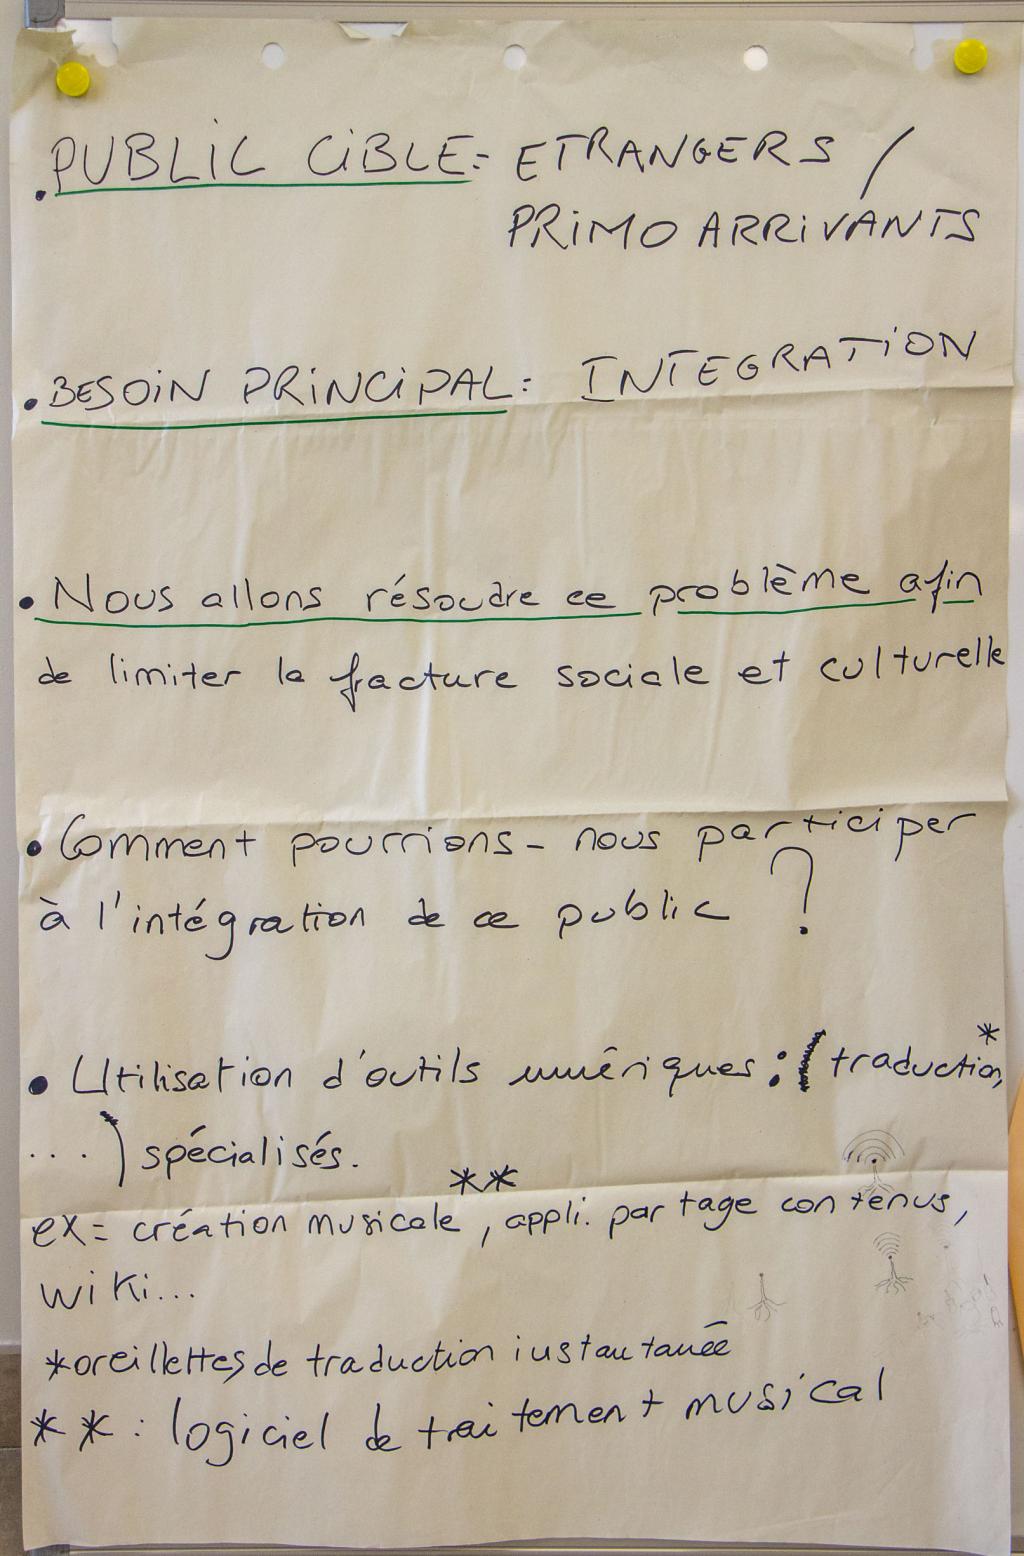 . PUBLIC CIBLE = ETRANGERS /
PRIMO ARRIVANTS
• BESOIN PRINCIPAL : INTEGRATION
• Nous allons résoudre ce problème afin
de limiter la fracture sociale et culturelle
• Comment pourrions-nous participer
à l'intégration de ce public ?
• Utilisation d'outils numériques : ( traduction*,
...) spécialisés.
ex = création musicale**, appli. partage contenus,
wiki...
*oreillettes de traduction instantanée
** : logiciel de traitement musical